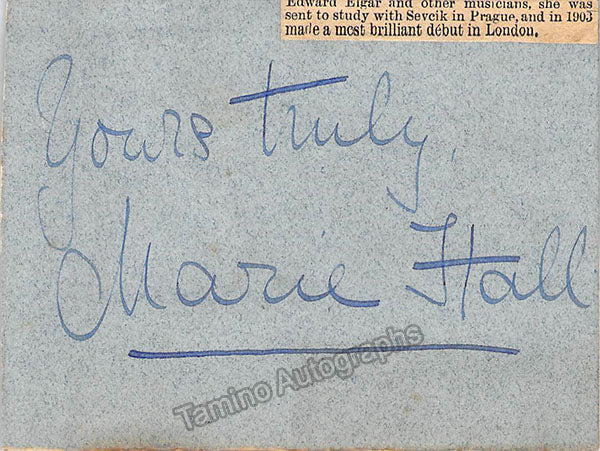 Edward Elgar and other musicians, she was
sent to study with Sevcik in Prague, and in 1903
made a most brilliant début in London.
Yours truly,
Marie Hall
Tamino Autographs